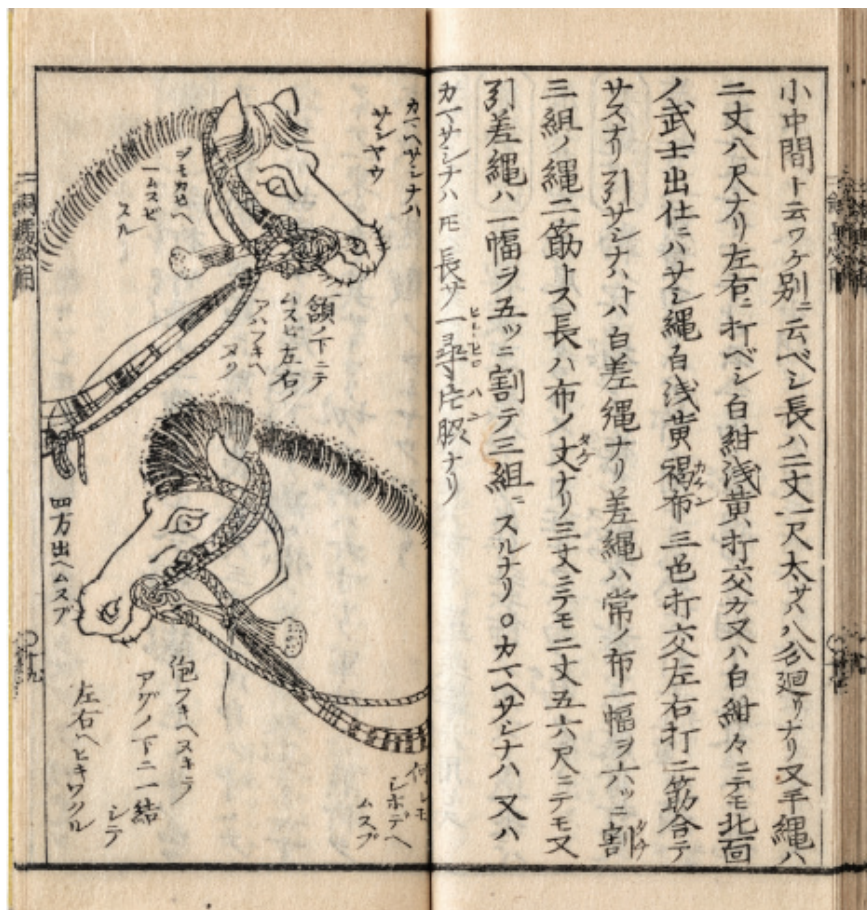 小中間ト云ワケ別ニ云ベシ長ハ二丈一尺太サハ八分廻リナリ又平縄ハ
二丈八尺ナリ左右ニ打ベシ白紺浅黄打交カ又ハ白紺々ニテモ北面
ノ武士出仕ニハサシ縄白浅黄褐布三色打交左右打二筋合テ
サスナリ引サシナハトハ白差縄ナリ差縄ハ常ノ布一幅ヲ六ッニ割
三組ノ縄二筋トス長ハ布ノ丈ナリ三丈ニテモ二丈五六尺ニテモ又
引差縄ハ一幅ヲ五ッニ割テ三組ニスルナリ○カマヘサシナハ又ハ
カマサシナハ𪜈長サ一尋片腋ナリ
カマヘサシナハ
サシヤウ
ヲモカヒヘ
一ムスビ
スル
頷ノ下ニテ
ムスビ左右ノ
アハフキヘ
ヌク
四方出ヘムスブ
泡フキヘスキテ
アゲノ下ニ一結
シテ
左右ヘヒキワクル
何レモ
シホデヘ
ムスブ